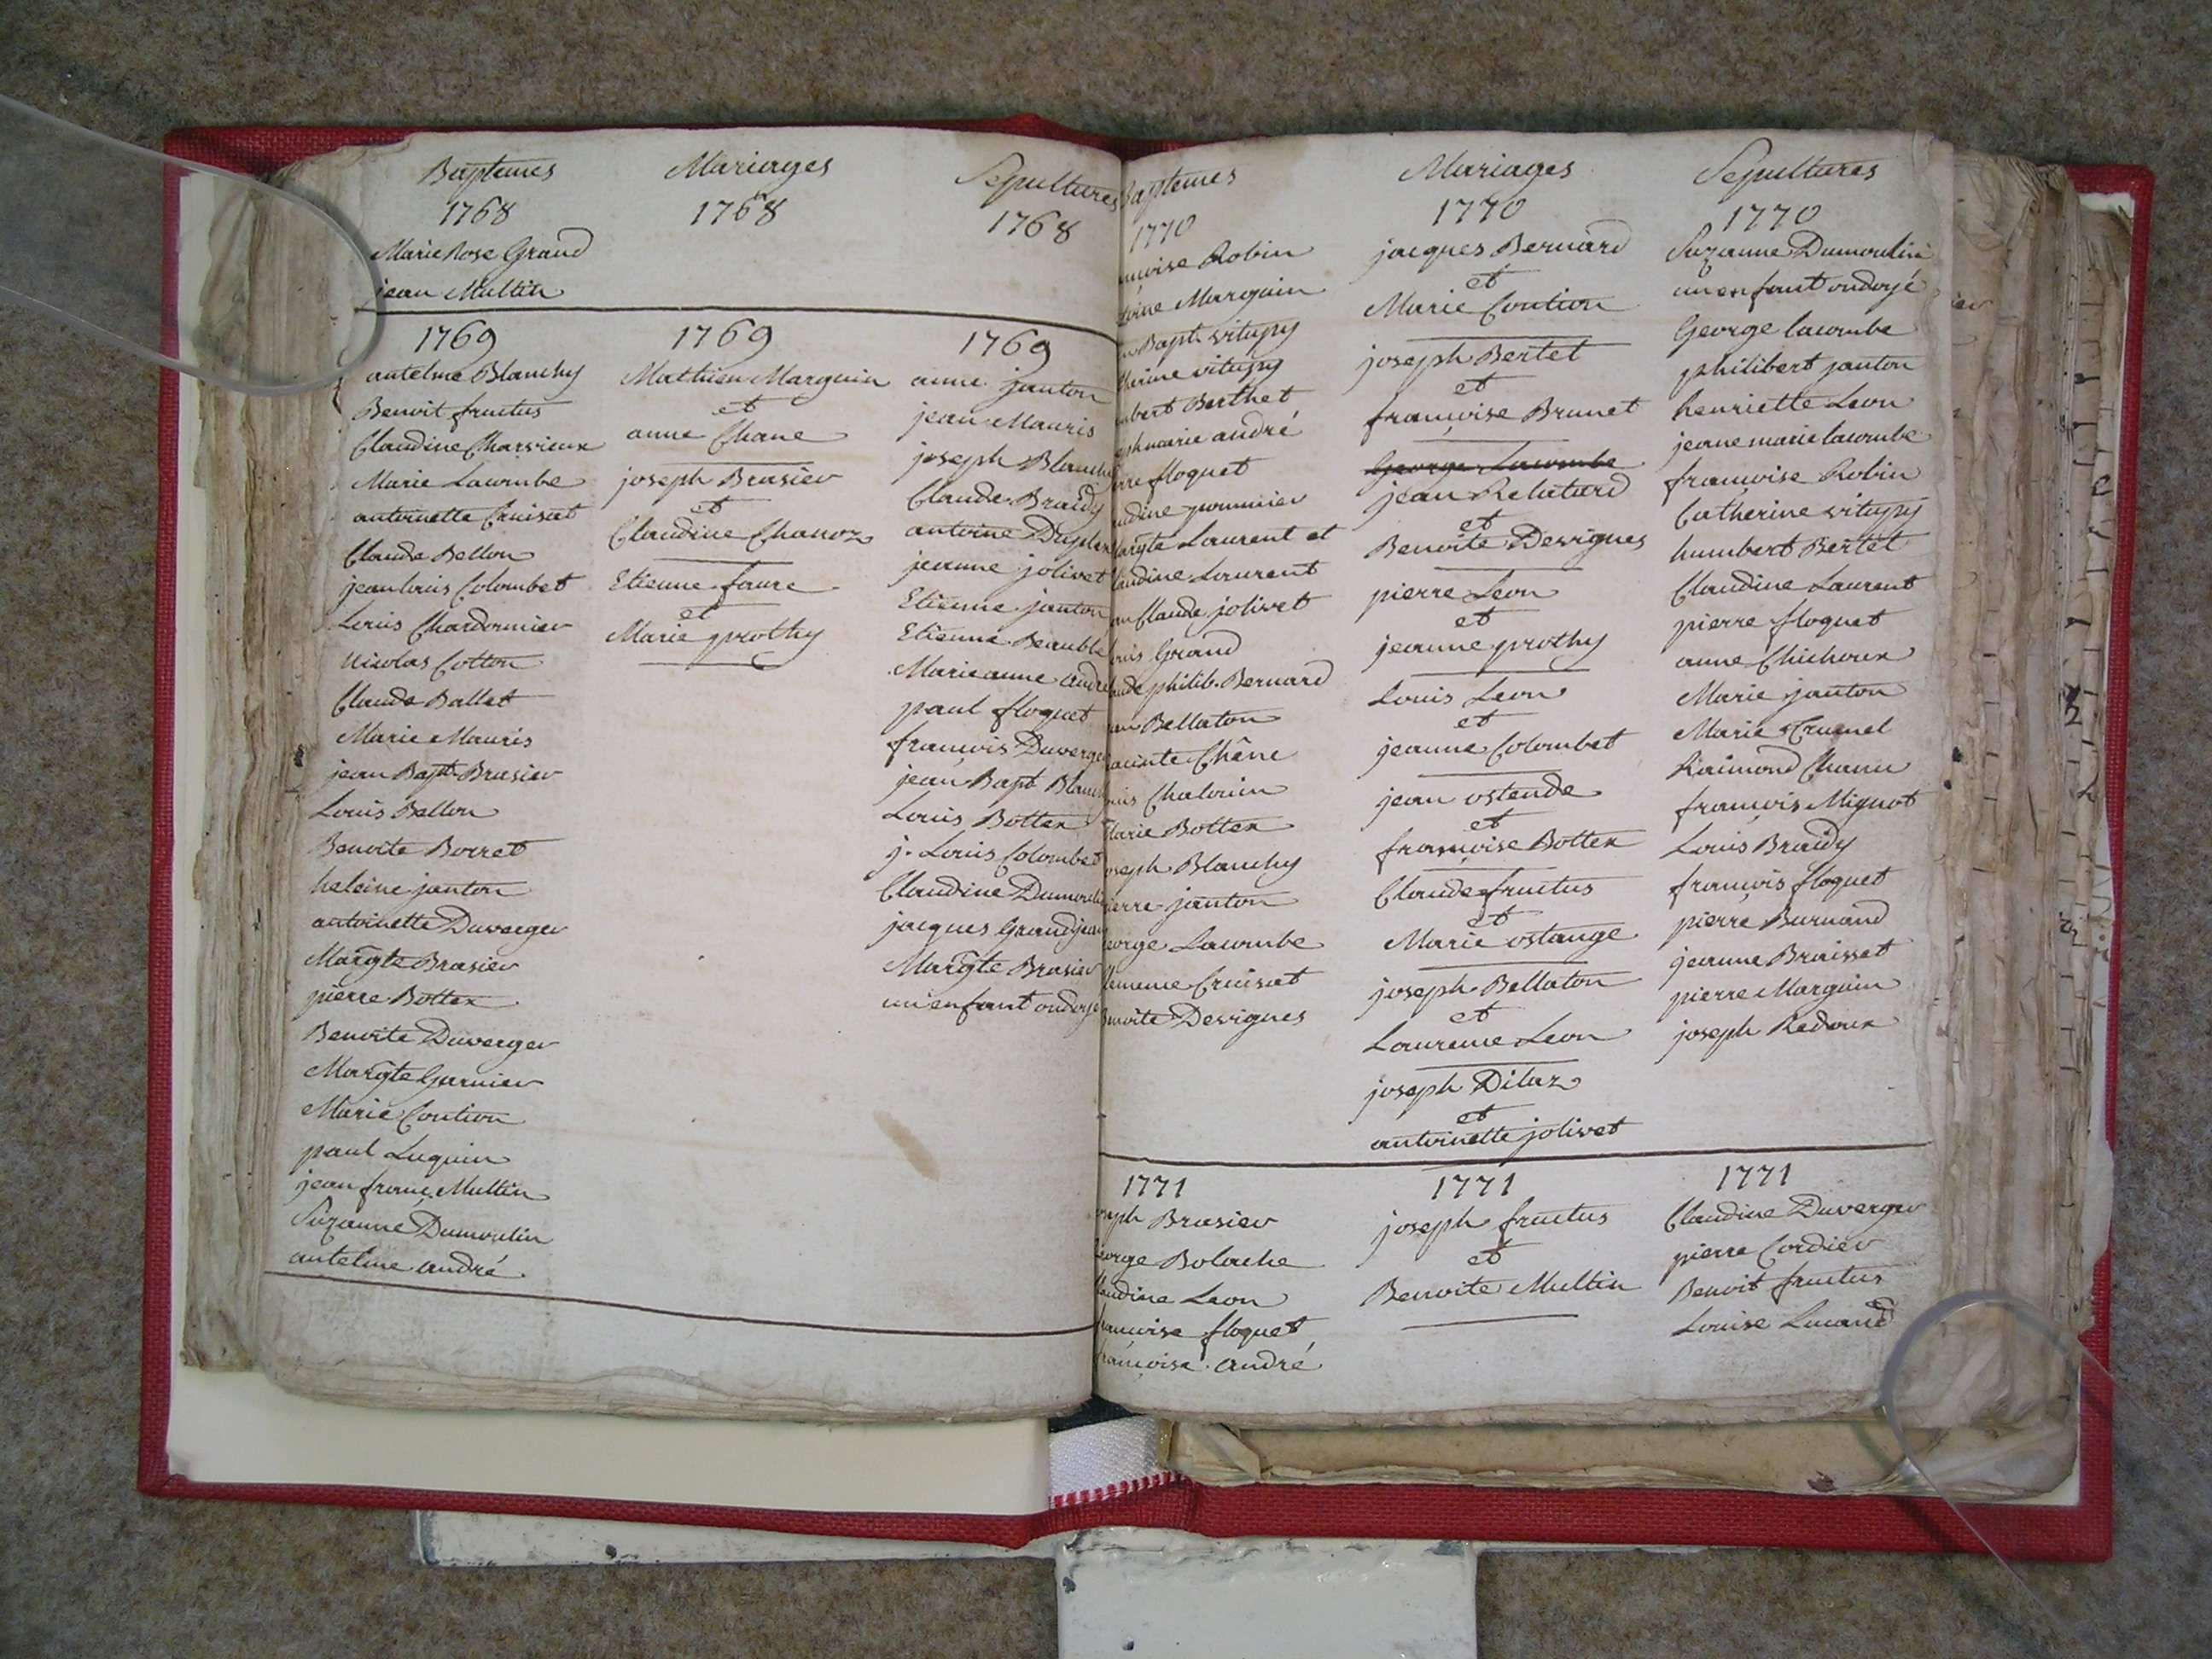 Baptemes
1768
Marie Rose Grand
jean Multin
1769
antelme Blanchy
Benoit fructus
Claudine Charvieux
Marie Lacombe
antoinette Cruisat
Claude Bellon
jean louis Colombet
Louis Chardonnier
Nicolas Cotton
Claude Ballet
Marie Mauris
jean Bapt. Brasier
Louis Ballon
Benoite Borret
heleine janton
antoinette Duverger
Margte Brasier
pierre Bottex
Benoite Duverger
Margte Garnier
Marie Coution
paul Luquin
jean franç. Multin
Suzanne Dumoulin
antelme andré
Mariages
1768
1769
Mathieu Marguin
et
anne Chane
joseph Brasier
et
Claudine Chanoz
Etienne faure
et
Marie prothy
Sepultures
1768
1769
anne janton
jean Mauris
joseph Blanchy
Claude Braidy
antoine Duplex
jeanne jolivet
Etienne janton
Etienne Beauble
Marie anne andré
paul floquet
francois Duverger
jean Bapt Blanc
Louis Bottex
j. Louis Colombet
Claudine Dumoulin
jacques Grandjean
Margte Brasier
un enfant ondoyé
Baptemes
1770
Robin
Marguin
Bapt. vitupy
vitupy
Berthet
marie andré
floquet
pommier
Laurent et
Laurent
Claude jolivet
Grand
philib. Bernard
Bellaton
Chêne
Chalouin
Marie Bottex
joseph Blanchy
pierre janton
George Lacombe
Cruisat
Benoite Desvignes
1771
joseph Brasier
George Bolache
Claudine Leon
françoise floquet
françoise andré
Mariages
1770
jacques Bernard
et
Marie Coution
joseph Bertet
et
françoise Brunet
George Lacombe
jean Relatard
et
Benoite Desvignes
pierre Leon
et
jeanne prothy
Louis Leon
et
jeanne Colombet
jean ostende
et
françoise Bottex
Claude fructus
et
Marie ostange
joseph Bellaton
et
Laurence Leon
joseph Dilaz
et
antoinette jolivet
1771
joseph fructus
et
Benoite Multin
Sepultures
1770
Suzanne Dumoulin
un enfant ondoyé
George lacombe
philibert janton
henriette Leon
jeane marie lacombe
françoise Robin
Catherine vitupy
humbert Bertet
Claudine Laurent
pierre floquet
anne Chichoux
Marie janton
Marie Crumel
Raimond Chanu
francois Mignot
Louis Braidy
françois floquet
pierre Burnand
jeanne Braisset
pierre Marguin
joseph Redoux
1771
Claudine Duverger
pierre Cordier
Benoit fructus
Louise Lucand